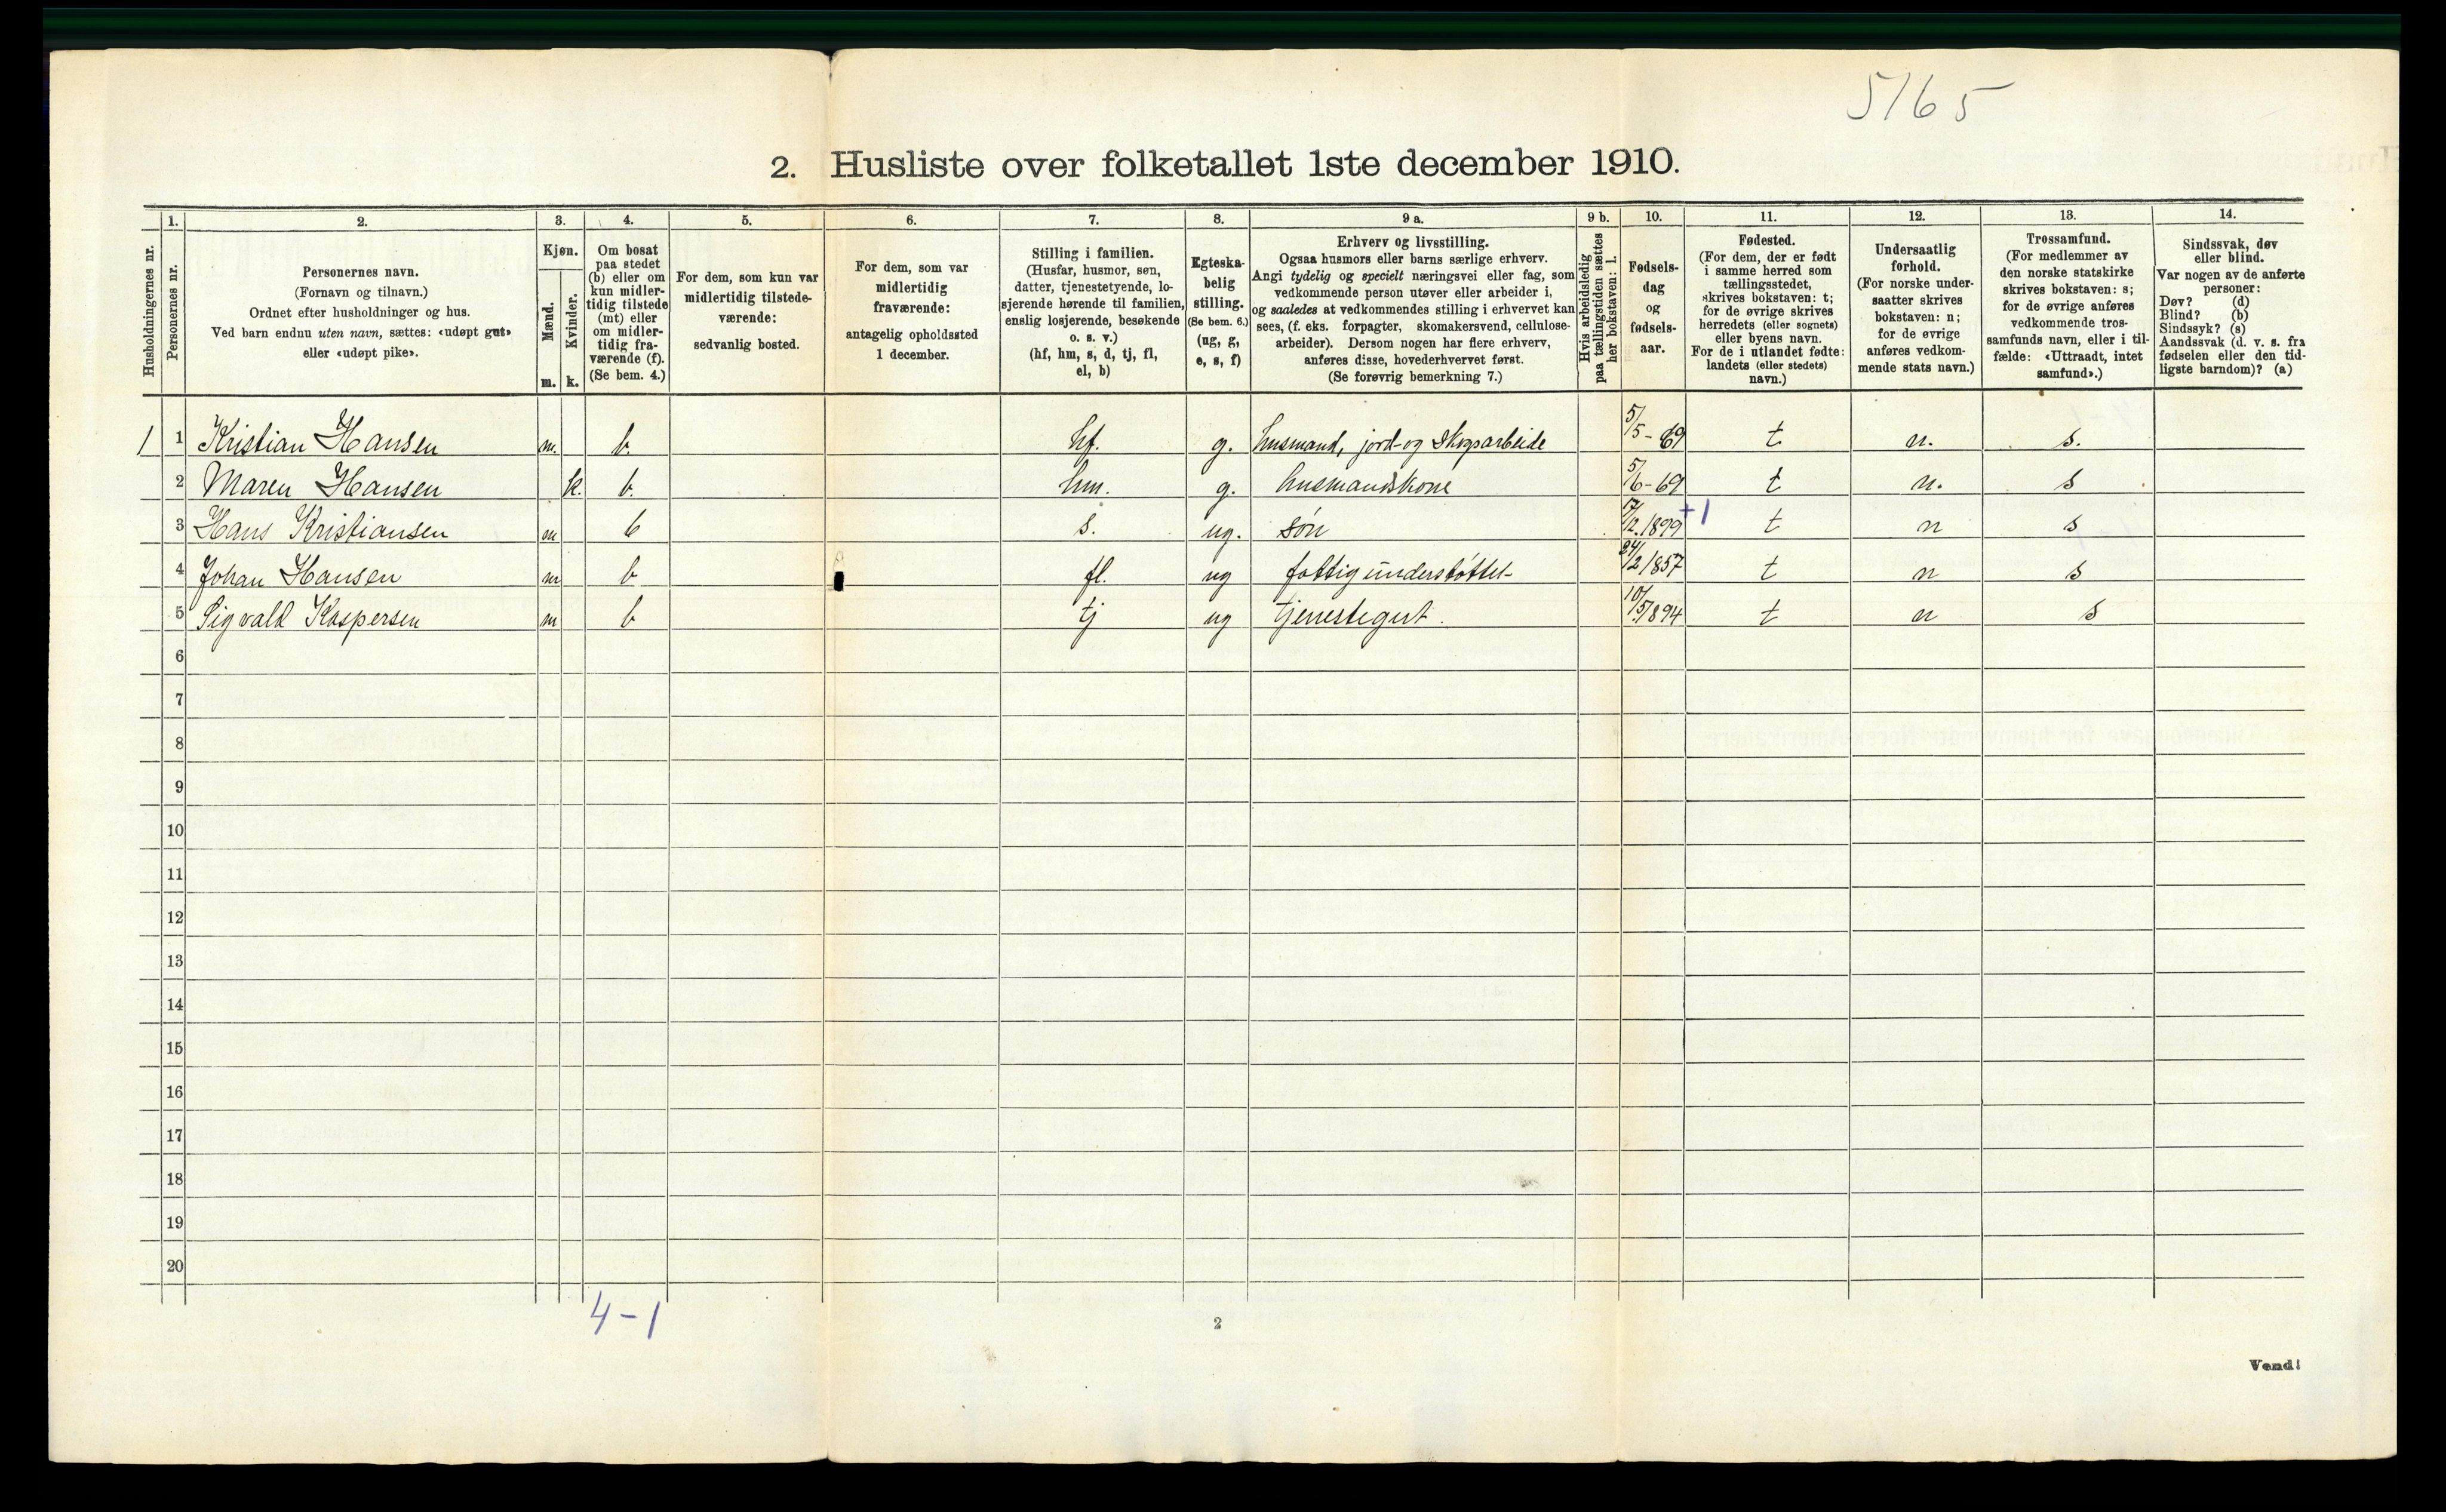 5165
2. Husliste over folketallet 1ste december 1910.
Husholdningernes nr.
1.
Personernes nr.
2.
Personernes navn.
(Fornavn og tilnavn.)
Ordnet efter husholdninger og hus.
Ved barn endnu uten navn, sættes: «udøpt gut»
eller «udøpt pike».
3.
Kjøn.
Mænd.
m.
Kvinder.
k.
4.
Om bosat
paa stedet
(b) eller om
kun midler-
tidig tilstede
(mt) eller
om midler-
tidig fra-
værende (f).
(Se bem. 4.)
5.
For dem, som kun var
midlertidig tilstede-
værende:
sedvanlig bosted.
6.
For dem, som var
midlertidig
fraværende:
antagelig opholdssted
1 december.
7.
Stilling i familien.
(Husfar, husmor, søn,
datter, tjenestetyende, lo-
sjerende hørende til familien,
enslig losjerende, besøkende
o. s. v.)
(hf, hm, s, d, tj, fl,
el, b)
8.
Egteska-
belig
stilling.
(Se bem. 6.)
(ug, g,
e, s, f)
9 a.
Erhverv og livsstilling.
Ogsaa husmors eller barns særlige erhverv.
Angi tydelig og specielt næringsvei eller fag, som
vedkommende person utøver eller arbeider i,
og saaledes at vedkommendes stilling i erhvervet kan
sees, (f. eks. forpagter, skomakersvend, cellulose-
arbeider). Dersom nogen har flere erhverv,
anføres disse, hovederhvervet først.
(Se forøvrig bemerkning 7.)
9 b.
Hvis arbeidsledig
paa tællingstiden sættes
her bokstaven: l.
10.
Fødsels-
dag
og
fødsels-
aar.
11.
Fødested.
(For dem, der er født
i samme herred som
tællingsstedet,
skrives bokstaven: t;
for de øvrige skrives
herredets (eller sognets)
eller byens navn.
For de i utlandet fødte:
landets (eller stedets)
navn.)
12.
Undersaatlig
forhold.
(For norske under-
saatter skrives
bokstaven: n;
for de øvrige
anføres vedkom-
mende stats navn.)
13.
Trossamfund.
(For medlemmer av
den norske statskirke
skrives bokstaven: s;
for de øvrige anføres
vedkommende tros-
samfunds navn, eller i til-
fælde: «Uttraadt, intet
samfund».)
14.
Sindssvak, døv
eller blind.
Var nogen av de anførte
personer:
Døv? (d)
Blind? (b)
Sindssyk? (s)
Aandssvak (d. v. s. fra
fødselen eller den tid-
ligste barndom)? (a)
1 1 Kristian Hansen m. b. hf. g. husmand, jord- og skogsarbeide 5/5-69 t. n. s.
2 Maren Hansen k. b. hm. g. husmandskone 5/6-69 t n. s
3 Hans Kristiansen m b s. ug. søn 17/12.1899 +1 t n s
4 Johan Hansen m b fl. ug fattigunderstøttet- 24/2 1857 t n s
5 Sigvald Kaspersen m b tj ug tjenestegut. 10/5 1894 t n s
6
7
8
9
10
11
12
13
14
15
16
17
18
19
20
4-1
2
Vend!